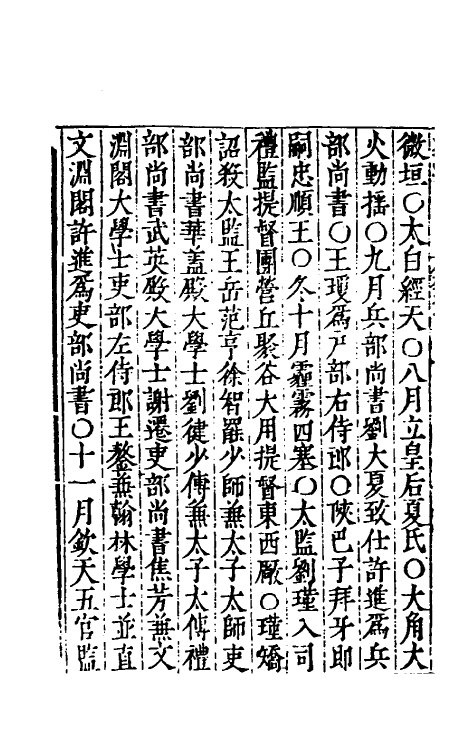 微垣○太白經天○八月立皇后夏氏○大角大
火動搖○九月兵部尚書劉大夏致仕許進爲兵
部尚書○王瓊爲戸部右侍郎○陝巴子拜牙即
嗣忠順王○冬十月霾霧四塞○太監劉瑾入司
禮監提督團營丘聚谷大用提督東西厰○瑾矯
詔殺太監王岳范亨徐智罷少師兼太子太師吏
部尚書華盖殿大學士劉健少傅兼太子太傅禮
部尚書武英殿大學士謝遷吏部尚書焦芳兼文
淵閣大學士吏部左侍郎王鏊兼翰林學士並直
文淵閣許進爲吏部尚書○十一月欽天五官監